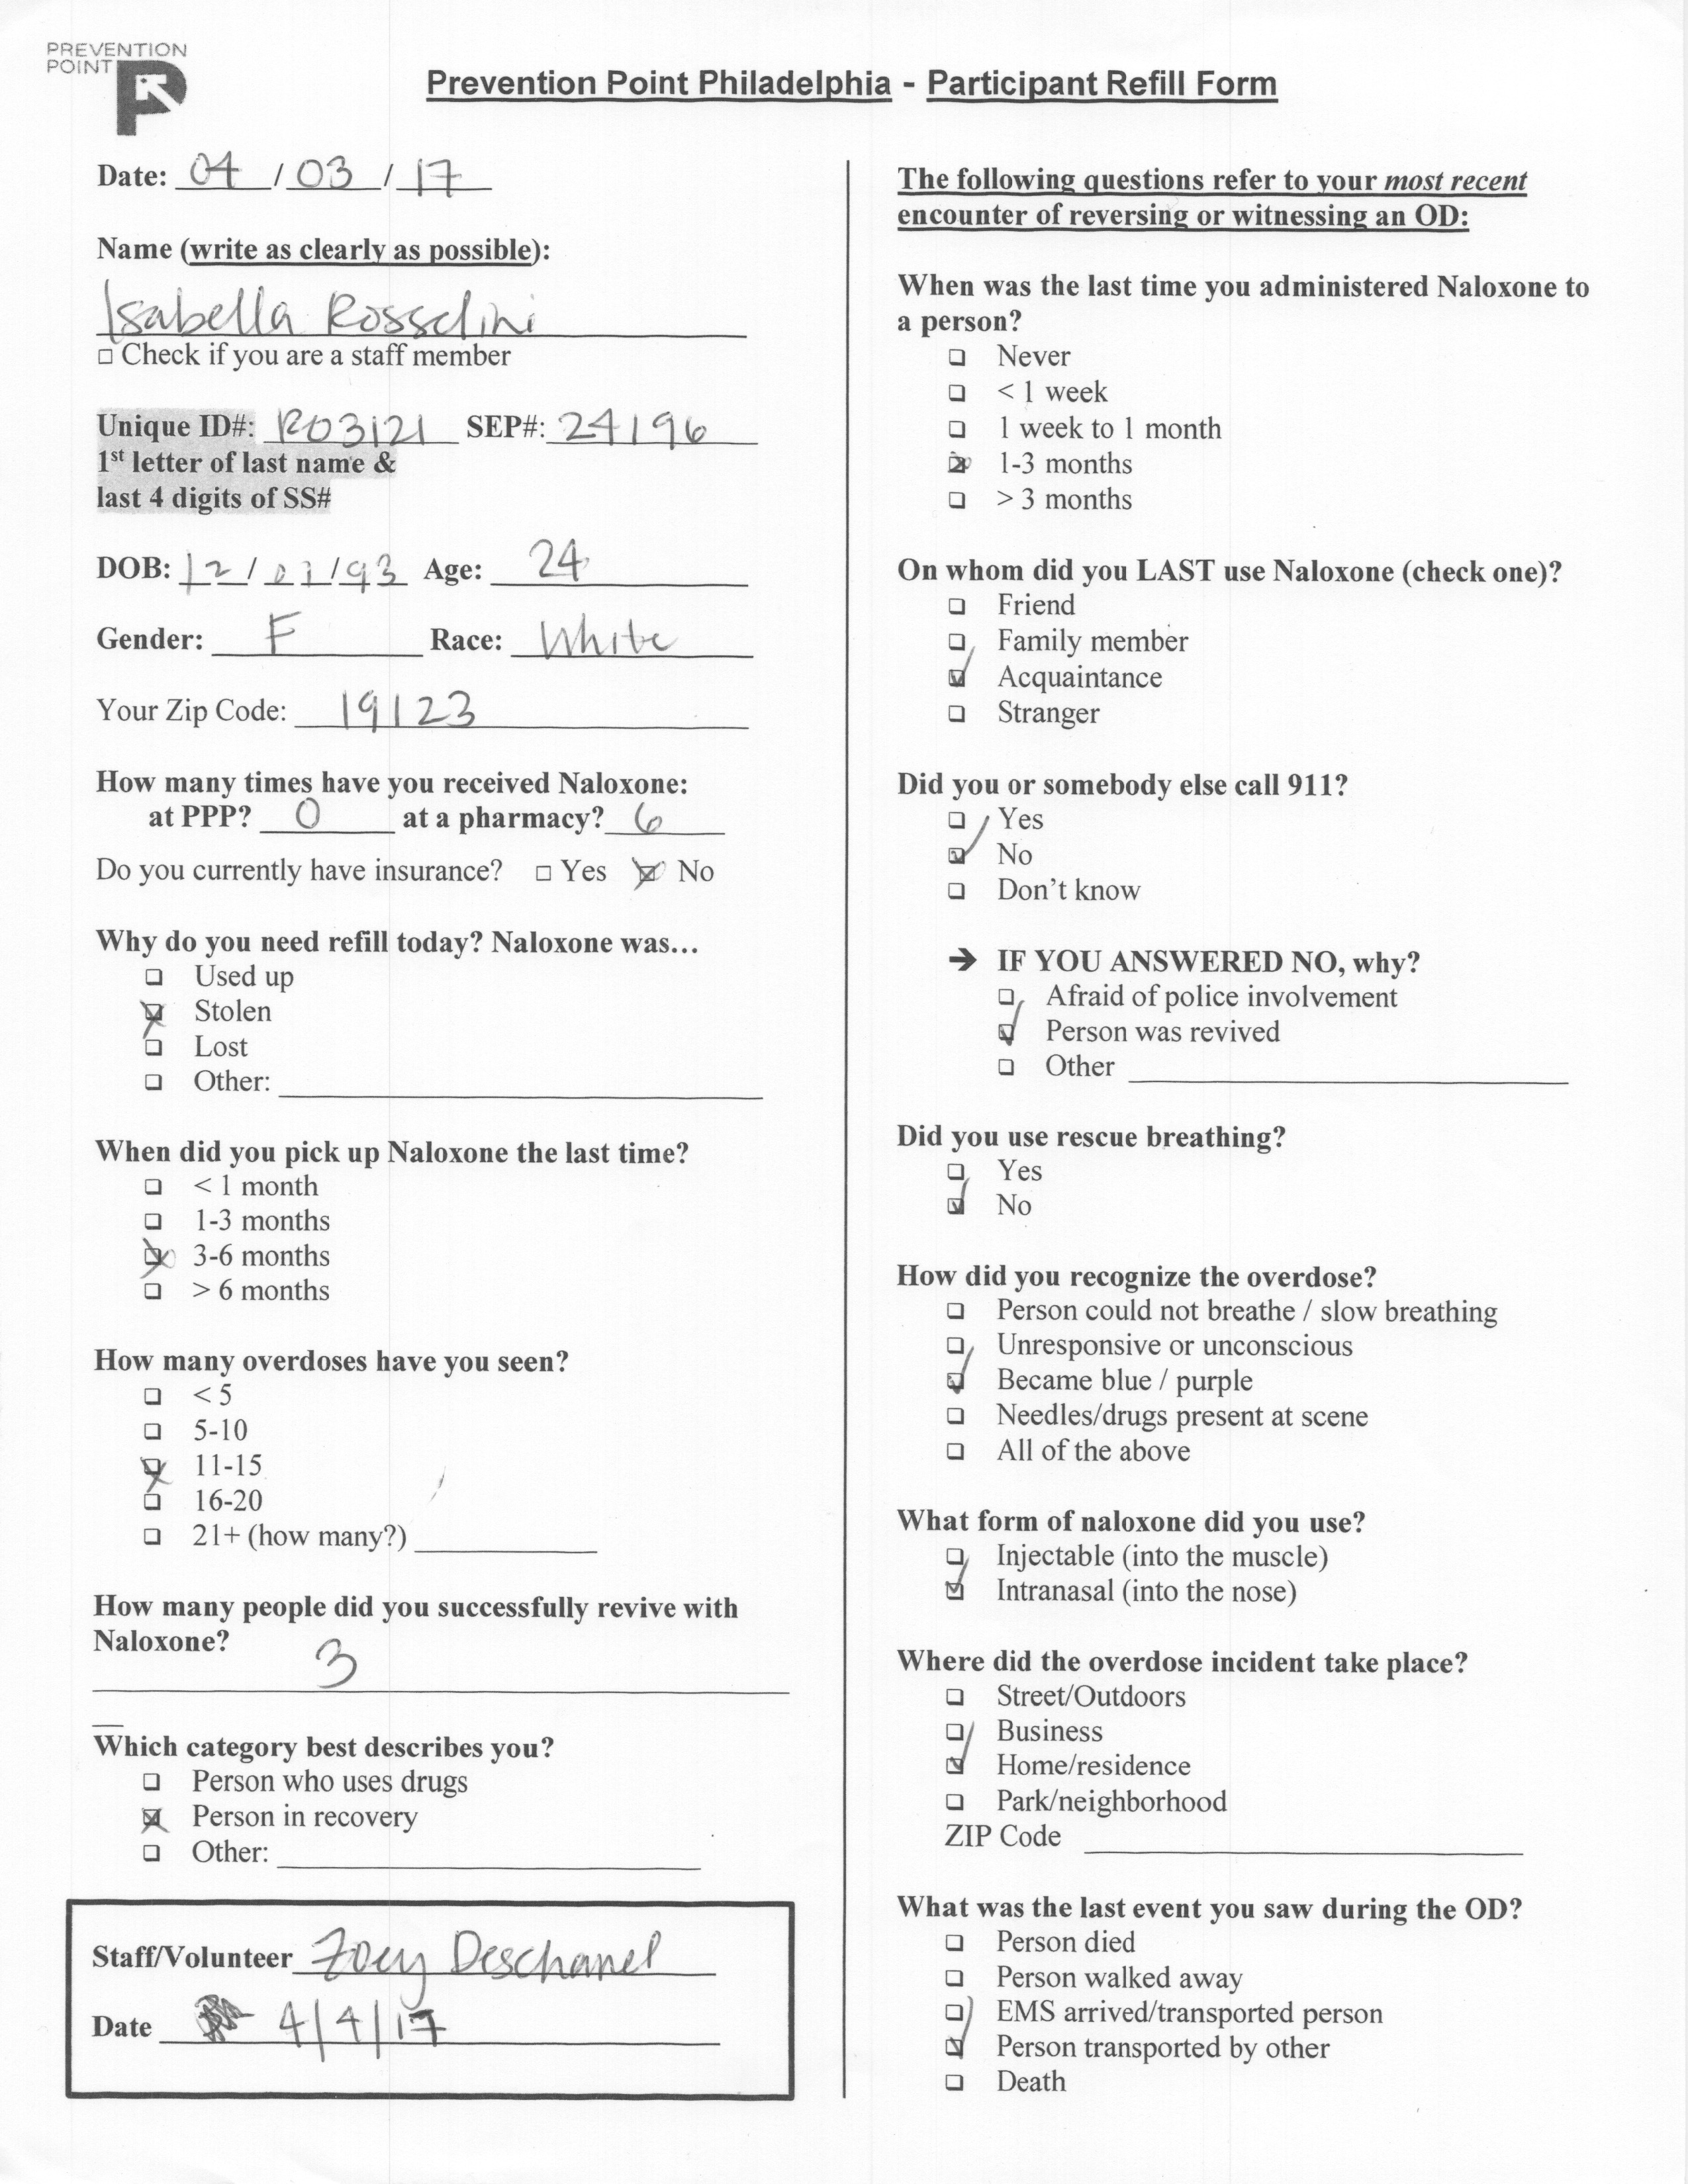 PREVENTION
POINT
Prevention Point Philadelphia - Participant Refill Form
Date: 04 / 03 / 17
Name (write as clearly as possible):
Isabella Rosselini
☐ Check if you are a staff member
Unique ID#: R03121 SEP#: 24196
1st letter of last name &
last 4 digits of SS#
DOB: 12/01/93 Age: 24
Gender: F Race: White
Your Zip Code: 19123
How many times have you received Naloxone:
at PPP? 0 at a pharmacy? 6
Do you currently have insurance? ☐ Yes ☒ No
Why do you need refill today? Naloxone was...
☐ Used up
☒ Stolen
☐ Lost
☐ Other:
When did you pick up Naloxone the last time?
☐ < 1 month
☐ 1-3 months
☒ 3-6 months
☐ > 6 months
How many overdoses have you seen?
☐ < 5
☐ 5-10
☒ 11-15
☐ 16-20
☐ 21+ (how many?)
How many people did you successfully revive with
Naloxone?
3
Which category best describes you?
☐ Person who uses drugs
☒ Person in recovery
☐ Other:
Staff/Volunteer Zoey Deschanel
Date 4/4/17
The following questions refer to your most recent
encounter of reversing or witnessing an OD:
When was the last time you administered Naloxone to
a person?
☐ Never
☐ < 1 week
☐ 1 week to 1 month
☒ 1-3 months
☐ > 3 months
On whom did you LAST use Naloxone (check one)?
☐ Friend
☐ Family member
☑ Acquaintance
☐ Stranger
Did you or somebody else call 911?
☐ Yes
☑ No
☐ Don't know
➔ IF YOU ANSWERED NO, why?
☐ Afraid of police involvement
☑ Person was revived
☐ Other
Did you use rescue breathing?
☐ Yes
☑ No
How did you recognize the overdose?
☐ Person could not breathe / slow breathing
☐ Unresponsive or unconscious
☑ Became blue / purple
☐ Needles/drugs present at scene
☐ All of the above
What form of naloxone did you use?
☐ Injectable (into the muscle)
☑ Intranasal (into the nose)
Where did the overdose incident take place?
☐ Street/Outdoors
☐ Business
☑ Home/residence
☐ Park/neighborhood
ZIP Code
What was the last event you saw during the OD?
☐ Person died
☐ Person walked away
☐ EMS arrived/transported person
☑ Person transported by other
☐ Death